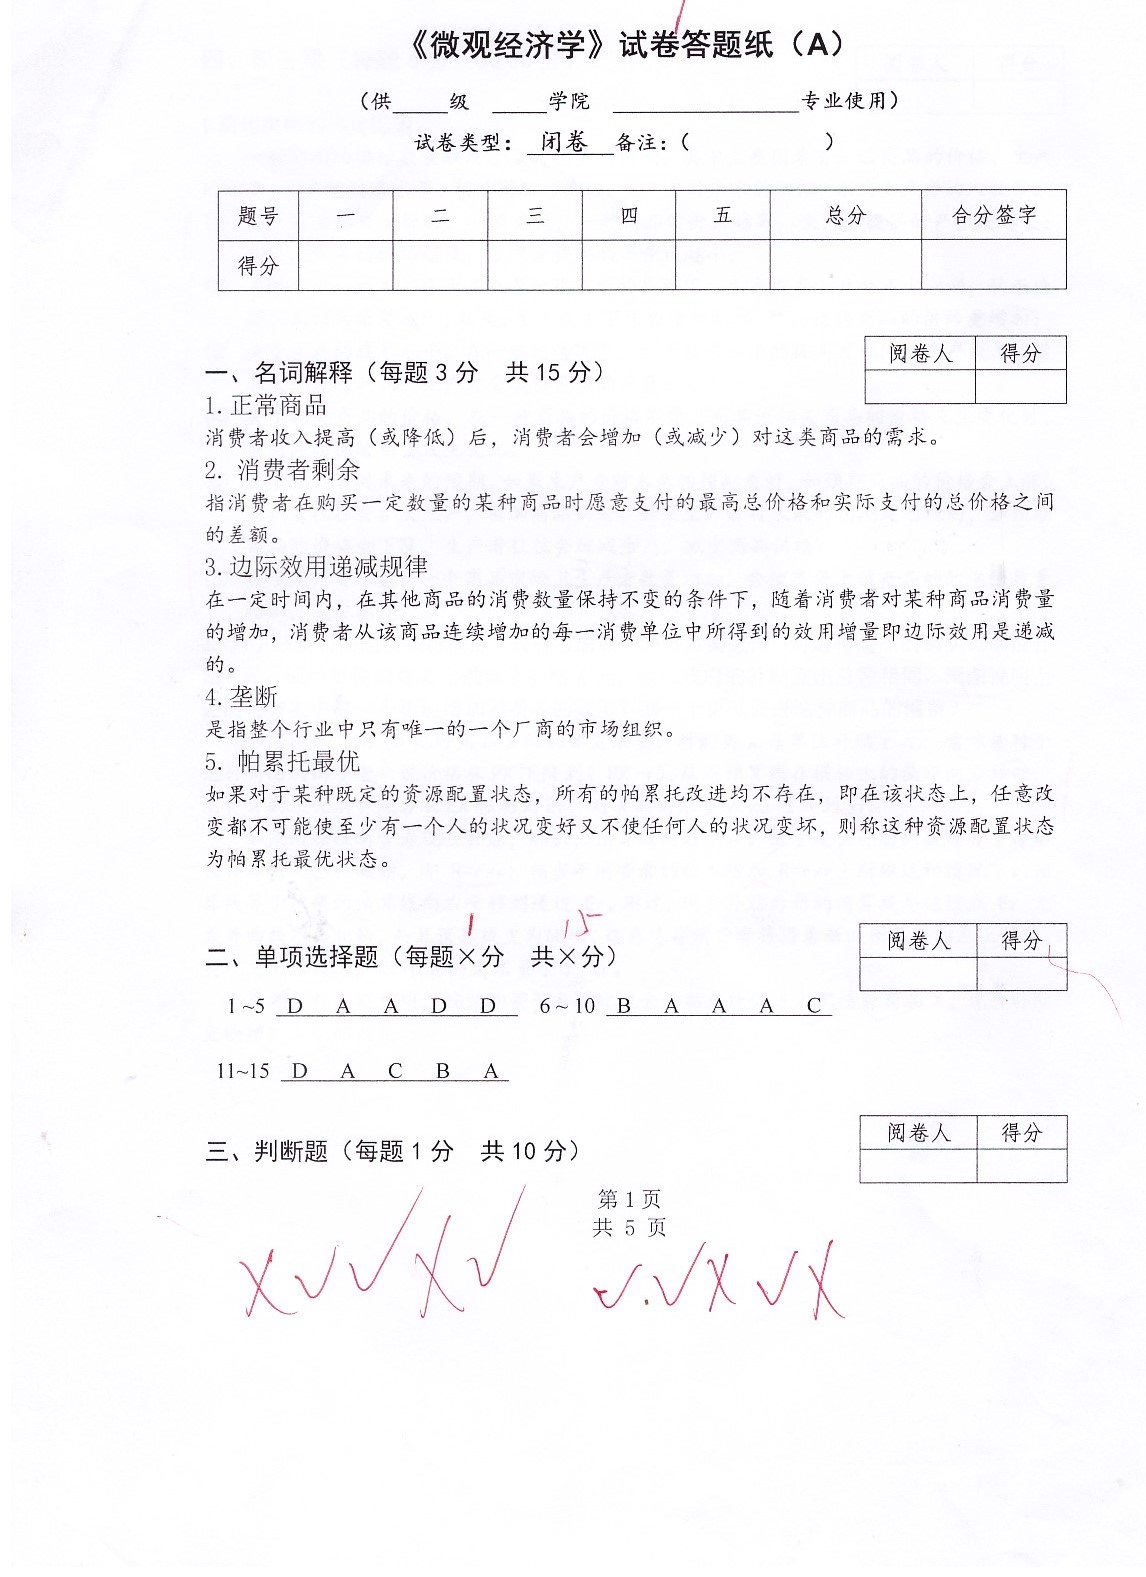 《微观经济学》试卷答题纸（A）
（供____级 ____学院 ______________专业使用）
试卷类型： 闭卷 备注：（ ）
题号 一 二 三 四 五 总分 合分签字
得分
阅卷人 得分
一、名词解释（每题3分 共15分）
1.正常商品
消费者收入提高（或降低）后，消费者会增加（或减少）对这类商品的需求。
2. 消费者剩余
指消费者在购买一定数量的某种商品时愿意支付的最高总价格和实际支付的总价格之间
的差额。
3.边际效用递减规律
在一定时间内，在其他商品的消费数量保持不变的条件下，随着消费者对某种商品消费量
的增加，消费者从该商品连续增加的每一消费单位中所得到的效用增量即边际效用是递减
的。
4.垄断
是指整个行业中只有唯一的一个厂商的市场组织。
5. 帕累托最优
如果对于某种既定的资源配置状态，所有的帕累托改进均不存在，即在该状态上，任意改
变都不可能使至少有一个人的状况变好又不使任何人的状况变坏，则称这种资源配置状态
为帕累托最优状态。
1 15
阅卷人 得分
二、单项选择题（每题×分 共×分）
1~5 D A A D D 6~10 B A A A C
11~15 D A C B A
阅卷人 得分
三、判断题（每题1分 共10分）
第1页
共 5 页
×√√×√ √√×√×